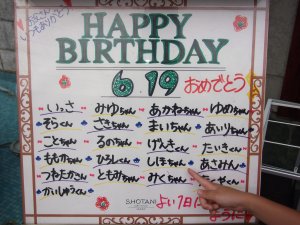 いつも
ありがとう
HAPPY
BIRTHDAY
6 19
おめでとう
いっさ みゆちゃん あかねちゃん ゆめちゃん
そらくん ささちゃん まいちゃん あいりちゃん
ことちゃん るのちゃん げんさん たいきさん
ももかちゃん ひろしくん しほちゃん あさみん
つねたかさん ともみちゃん みくちゃん
かいしゅうくん
SHOTANI
よい1日に